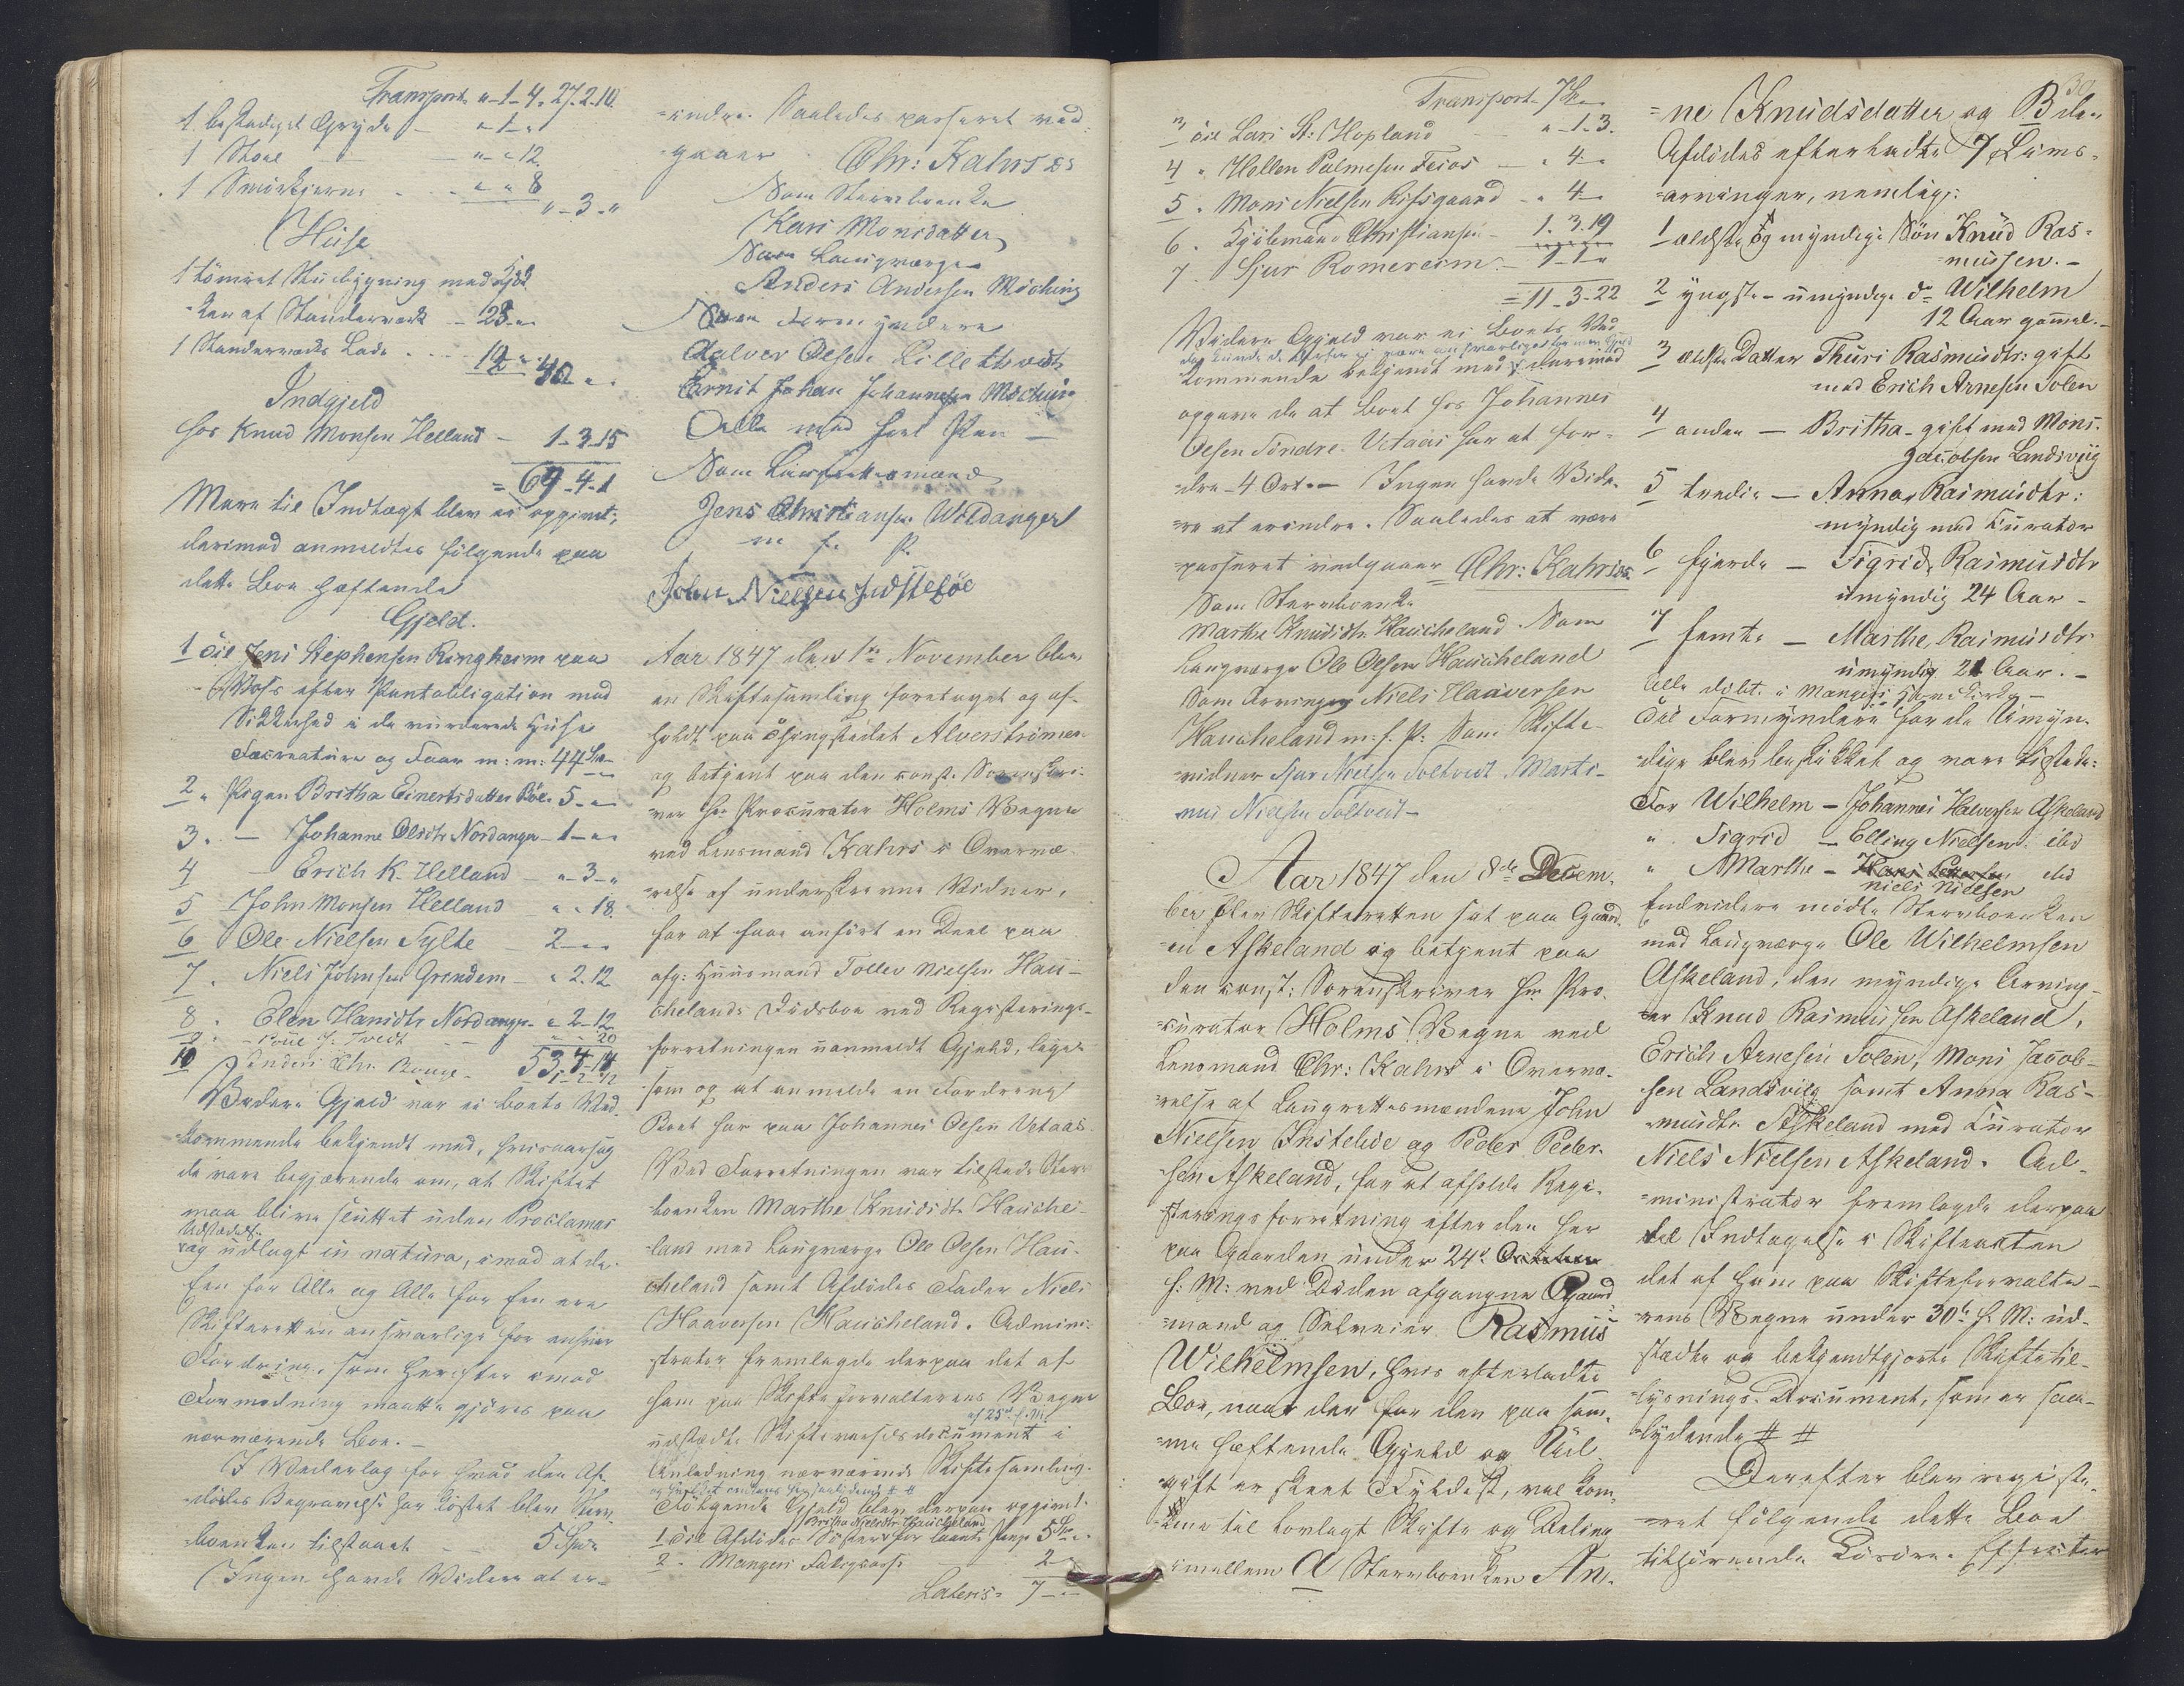 Transport "-1-4. 27.2.10.
1 beskadiget Gryde - "-1-"
1 Stoel - "-"12
1 Smørkjerne - "-"8
"-3-"
Huse
1 tømret Stuebygning med
-ken af Standerverk - 28-"-
1 Standerværks Lade - 12-"-
40-"-
Indgjeld
hos Knud Monsen Helland - 1-3-15
= 69-4-1
Mere til Indtægt blev ei opgivet,
derimod anmeldtes følgende paa
dette Boe hæftende
Gjeld.
1 til Jens Stephensen Ringheim paa
Voss efter Pantobligation med
Sikkerhed i de vurderede Huse
Creature og Faar m: m: 44
2 " Pigen Britha Einertsdatter Böe 5-"-
3 " - Johanne Olsdtr Nordanger 1-"-
4 - Erich K. Helland - "-3-"
5 - John Monsen Helland " " 18.
6 Ole Nielsen Sylte - 2-"-
7 . Niels Johnsen Grendem - " 2.12
8 . Elen Hansdtr Nordanger - " 2-12
9 " - J. Tvedt - " - 20
10 Anders Chr. Bouge - 1-2-12
53-4-14
Videre Gjeld var ei Boets Ved-
kommende bekjendt med, hvisaarsag
de vare begjærende om, at Skiftet
maa blive sluttet uden Proclamas
Udstædelse
og udlagt in natura, imod at de
Een for Alle og Alle for Een ere
Skifteretten ansvarlige for enhver
Fordring, som herefter imod
Formodning maatte gjøres paa
nærværende Boe. -
I Vederlag for hvad den Af-
dödes Begravelse har kostet blev Sterv-
boenken tilstaaet - 5 Spd
Ingen havde Videre at er-
-indre. Saaledes passeret ved-
-gaaer Chr: Kahrs
Som Stervboenke
Kari Monsdatter
Som Laugværge
Anders Andersen Mjöching
Som Formyndere
Halver Olsen Lilletvedt
Bernt Johan Johannesen
Alle med holt Pen -
Som Laugrettesmænd
Jens Christiansen Woldanger
m f. P.
John Nielsen Indsteböe
Aar 1847 den 1ste November blev
en Skiftesamling foretaget og af-
holdt paa Thingstedet Alverströmen
og betjent paa den const. Sorenskri-
ver Hr Procurator Holms Vegne
ved Lensmand Kahrs i Overvæ-
relse af underskrevne Vidner,
for at faae anført en Deel paa
afg: Huusmand Tollev Nielsen Hau-
chelands Dødsboe ved Registerings-
forretningen uanmeldt Gjeld, lige-
som og at anmelde en Fordring
Boet har paa Johannes Olsen Vetaas.
Ved Forretningen var tilstæde Sterv-
boenken Marthe Knudsdtr Hauche-
land med Laugværge Ole Olsen Hau-
cheland samt Afdödes Fader Niels
Haaversen Haucheland. Admini-
strator fremlagde derpaa det af
ham paa Skifteforvalterens Vegne
af 25de f. M.
udstædte Skiftevarselsdocument i
Anledning nærværende Skiftesamling
Følgende Gjeld blev derpaa opgivet:
Britha Nielsdtr Haucheland
1 til Afdödes Søster for laante Penge 5
2 " Mangers Fattigkasse - 2
Lateris = 7-"-
Transport 7
3 til Lars St: Hopland - "-1-3.
4 " Hellen Palmesen Feios - " 4-"
5 . Mons Nielsen Risgaard - " 4-"
6 . Kjöbmand Christiansen - 1.3.19
7 . Sjur Romereim - 1-1-"
= 11-3-22
Videre Gjeld var ei Boets Ved-
kommende bekjendt med, derimod
opgave de at Boet hos Johannes
Olsen Söndre Vetaas har at for-
dre - 4 Ort. - Ingen havde Vide-
re at erindre. Saaledes at være
passeret vedgaaer Chr: Kahrs
Som Stervboenke
Marthe Knudsdtr Haucheland Som
Laugværge Ole Olsen Haucheland
Som Arvinger Niels Haaversen
Haucheland m: f. P: Som Skifte-
vidner Sjur Nielsen Toltvedt Marti-
nus Nielsen Toltvedt -
Aar 1847 den 8de Decem-
ber blev Skifteretten sat paa Gaard-
en Askeland og betjent paa
den const: Sorenskriver Hr Pro-
curator Holms Vegne ved
Lensmand Chr: Kahrs i Overvæ-
relse af Laugrettesmændene John
Nielsen Insteböe og Peder Peder-
sen Askeland, for at afholde Regi-
steringsforretning efter den her
paa Gaarden under 24de
f: M: ved Døden afgangne Gaard-
mand og Selveier Rasmus
Wilhelmsen, hvis efterladte
Boe, naar der for den paa sam-
me hæftende Gjeld og Ud-
gift er skeet Fyldest, vil kom-
me til lovlagt Skifte og Deling
imellem A Stervboenken An-
30
-ne Knudsdatter og B den
Afdødes efterladte 7 Livs-
arvinger, nemlig:
1 ældste og myndige Søn Knud Ras-
mussen. -
2 yngste - umyndige do Wilhelm
12 Aar gammel. -
3 ældste Datter Thuri Rasmusdtr: gift
med Erich Arnesen Tolen
4 anden - Britha - gift med Mons
Jacobsen Landsviig
5 tredie - Anna Rasmusdtr:
myndig med Curator
6 fjerde - Sigrid Rasmusdtr
umyndig 24 Aar -
7 femte - Marthe Rasmusdtr
umyndig 21 Aar. -
Til Formyndere for de Umyn-
dige blev beskikket og vare tilstede:
For Wilhelm - Johannes Halversen Askeland
" Sigrid - Elling Nielsen ibd
" Marthe - Hans Pettersen ibd
Niels Nielsen
Endvidere mødte Stervboenken
med Laugværge Ole Wilhelmsen
Askeland, den myndige Arving-
er Knud Rasmussen Askeland,
Erich Arnesen Tolen, Mons Jacob-
sen Landsviig samt Anna Ras-
musdtr Askeland med Curator
Niels Nielsen Askeland. Ad-
ministrator fremlagde derpaa
til Indtagelse i Skifteacten
det af ham paa Skifteforvalte-
rens Vegne under 30te f. M: ud-
stædte og bekjendtgjorte Skiftetil-
lysnings-Document, som er saa-
lydende # #
Derefter blev registe-
-ret følgende dette Boe
tilhørende Løsøre-Effecter